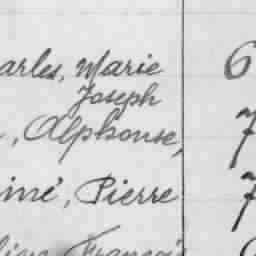 arles, Marie 6
Joseph
, Alphonse, 7
iné, Pierre 7
François